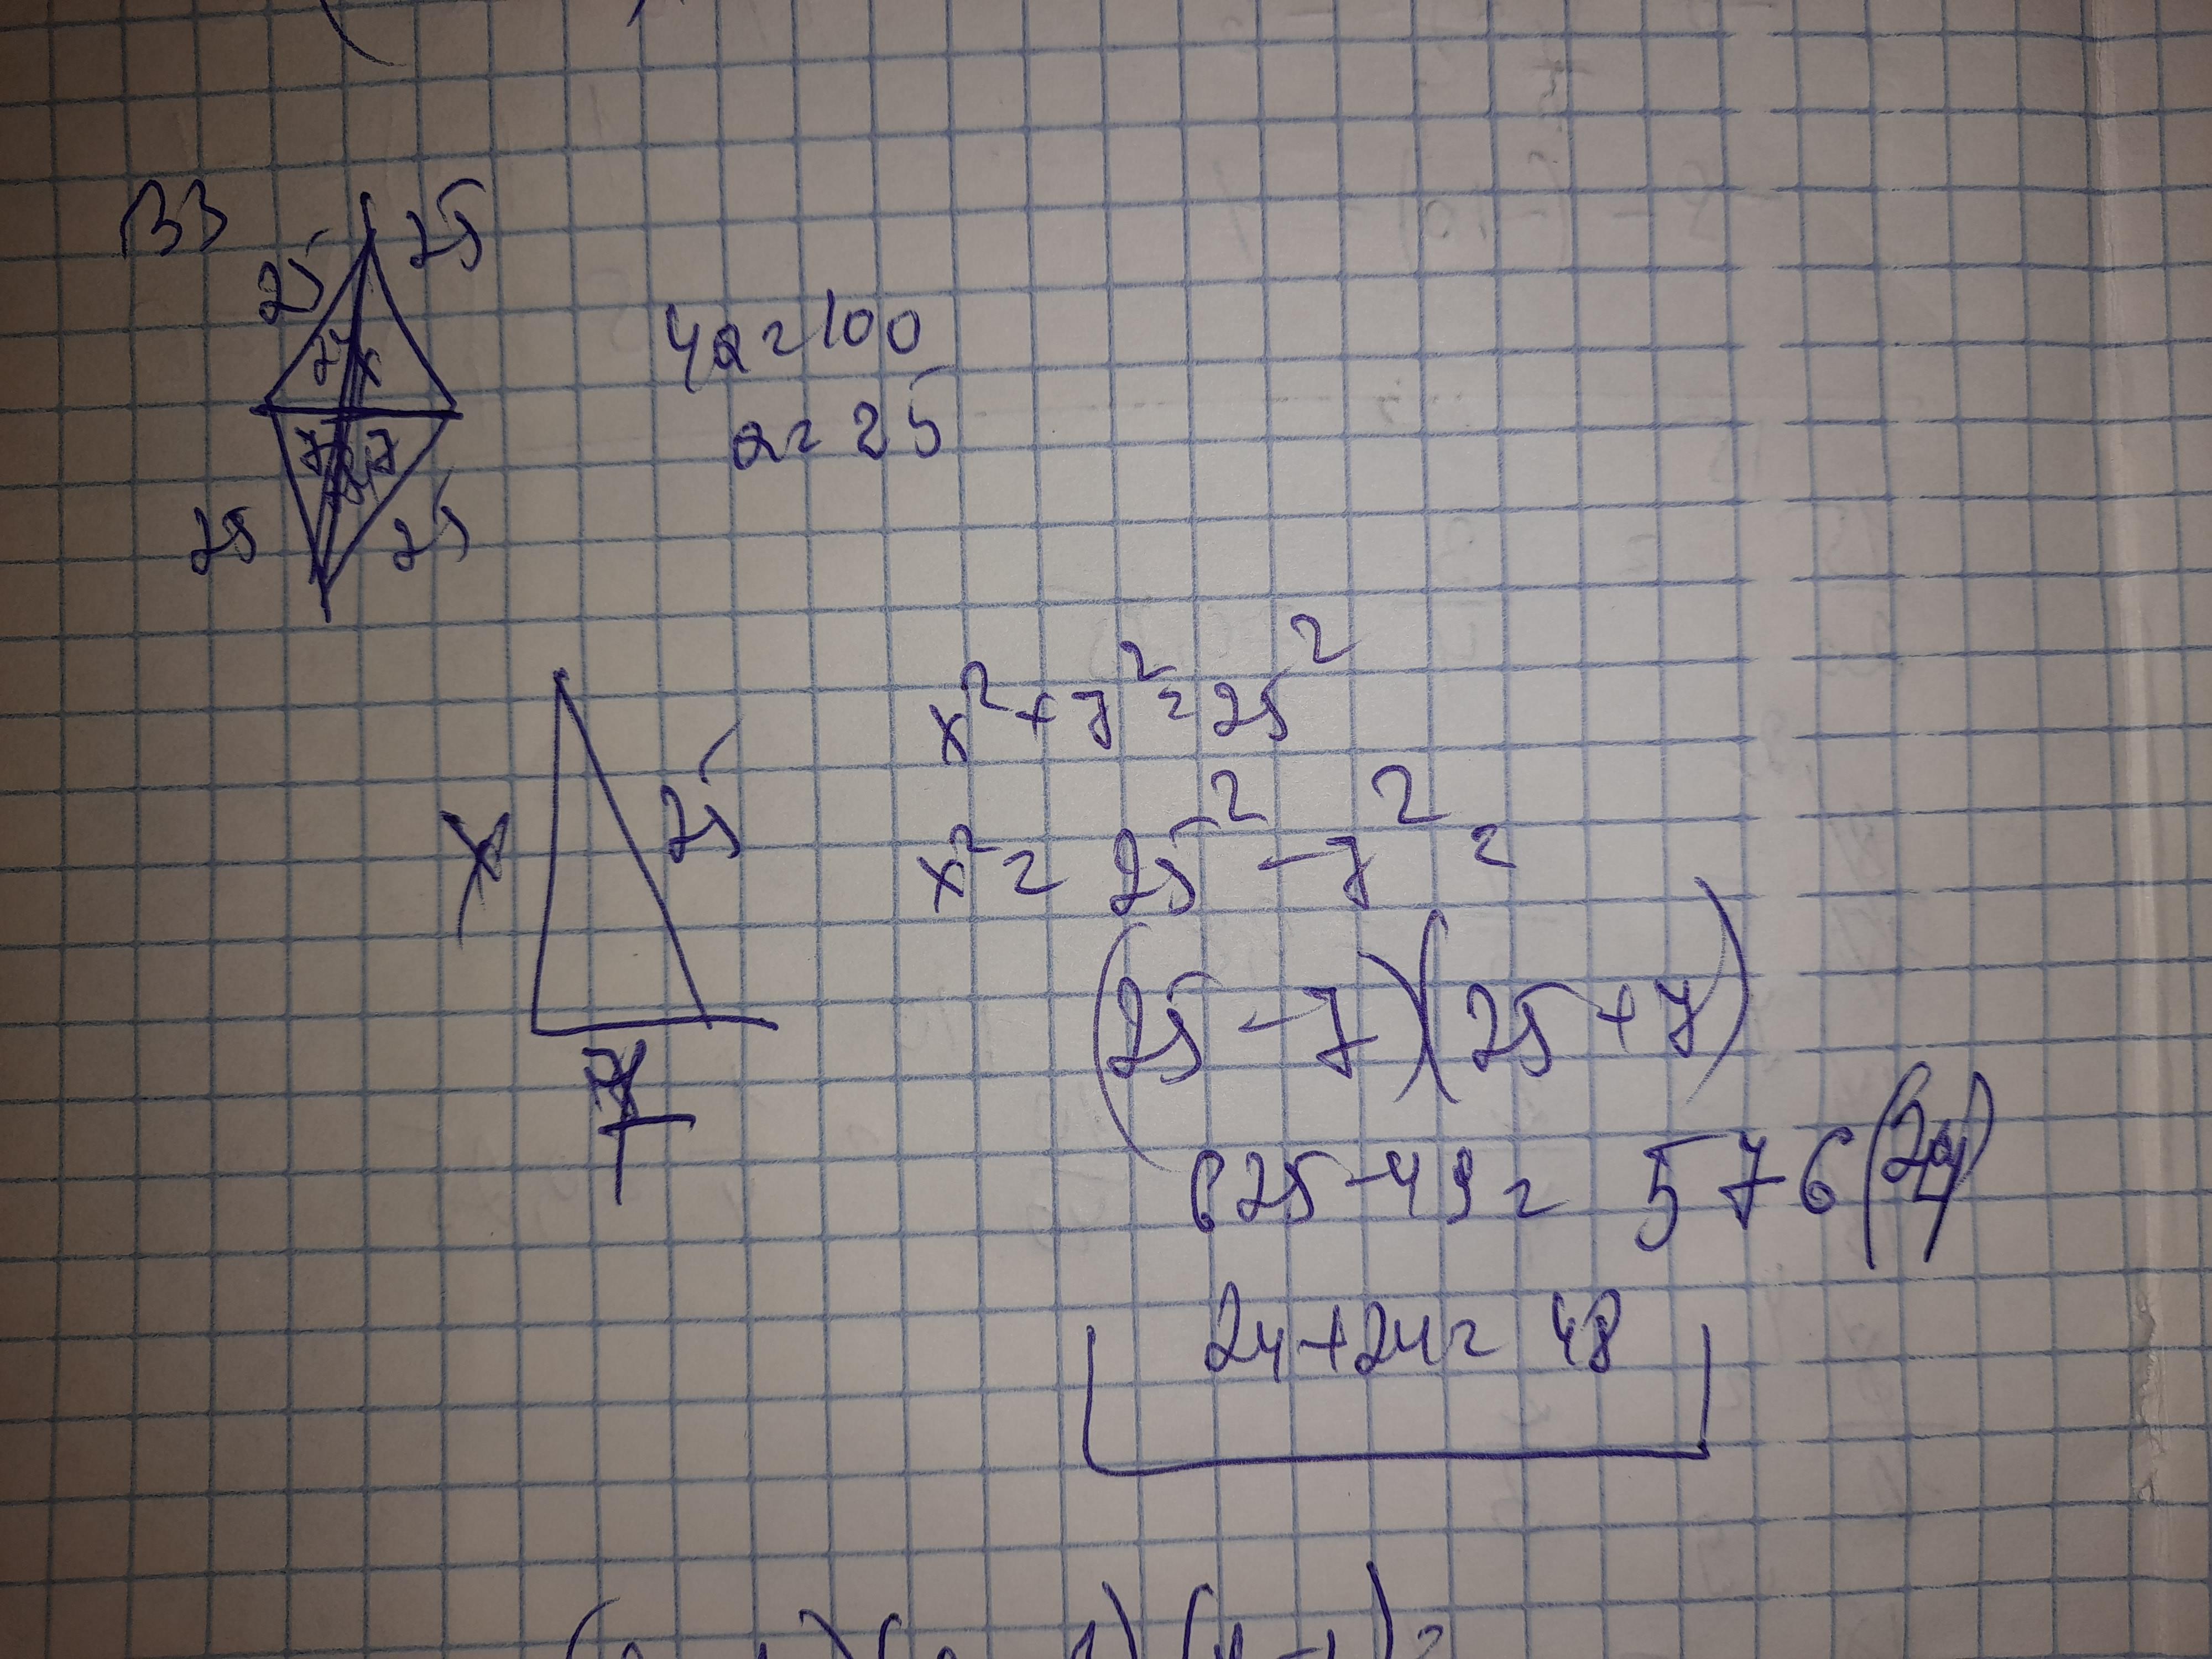 B3
25 25
24 x
7 7
25 25
4a=100
a=25
x 25
7
x²+7²=25²
x²=25²-7²=
(25-7)(25+7)
625-49=576(24)
24+24=48